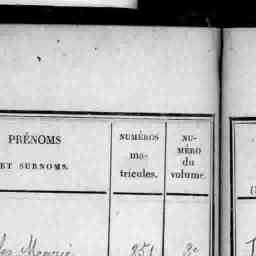 PRÉNOMS
ET SURNOMS.
NUMÉROS
ma-
tricules.
NU-
MÉRO
du
volume.
251
2e